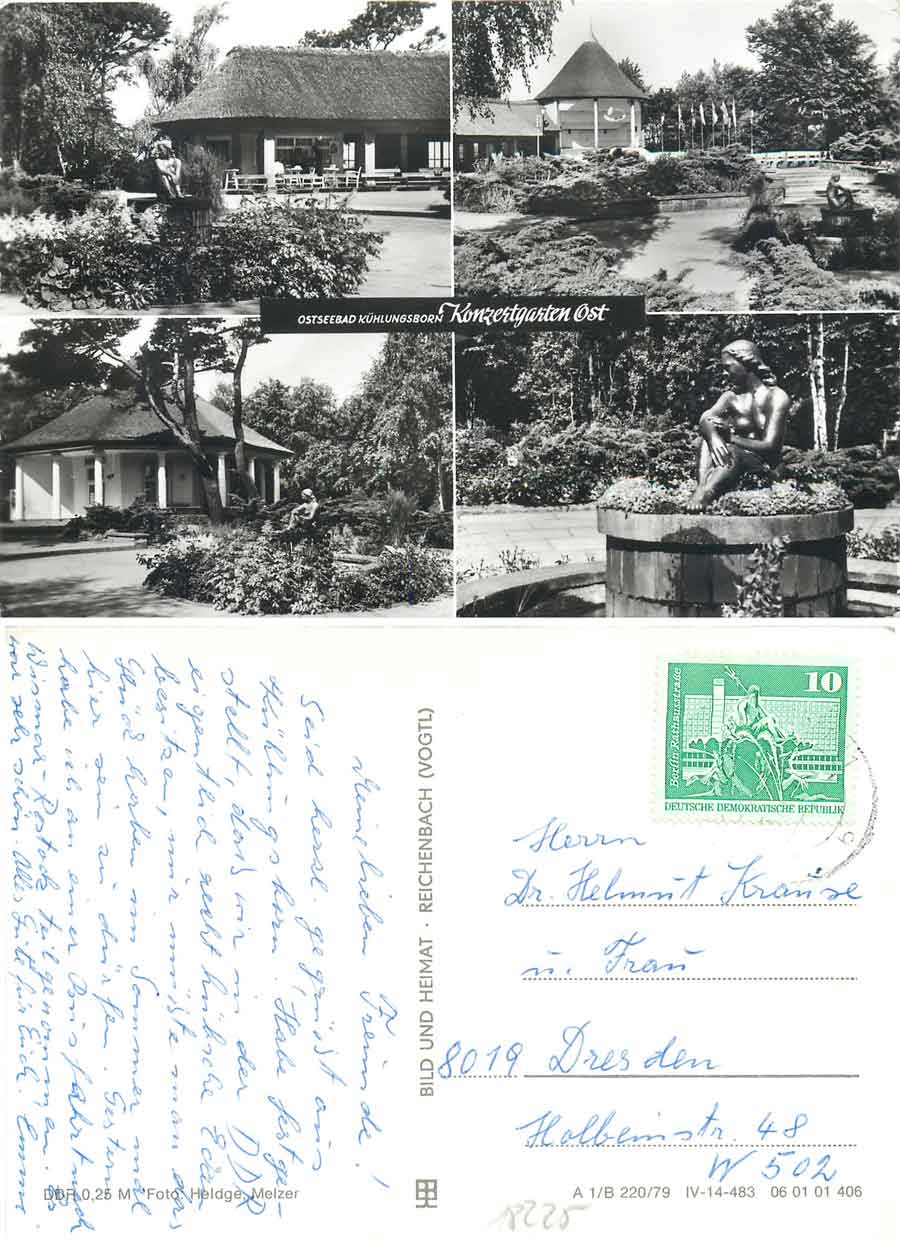 OSTSEEBAD KÜHLUNGSBORN Konzertgarten Ost
Meine lieben Freunde!
Seid herzl. gegrüßt aus
Kühlungsborn. Habe festge-
stellt, daß wir in der DDR
eigentlich recht hübsche Ecken
besitzen, nur müßte man das
Glück haben im Sommer mal
hier sein zu dürfen. Gestern
habe ich an einer Busfahrt nach
Wismar-Rostock teilgenommen. Es
war sehr schön. Alles Gute für Euch!
BILD UND HEIMAT · REICHENBACH (VOGTL)
Berlin Rathausstraße
10
DEUTSCHE DEMOKRATISCHE REPUBLIK
Herrn
Dr. Helmut Krause
u. Frau
8019 Dresden
Holbeinstr. 48
W 502
DDR 0,25 M Foto: Heldge, Melzer
A 1/B 220/79 IV-14-483 06 01 01 406
18225